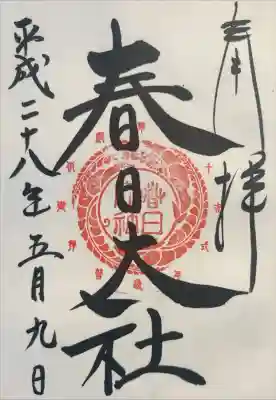 奉拝
春日大社
平成二十八年五月九日
春日